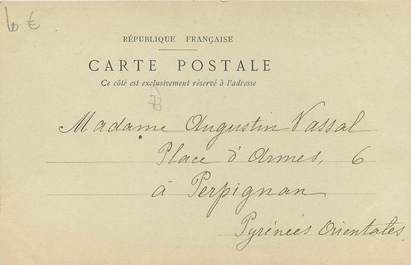 6 €
RÉPUBLIQUE FRANÇAISE
CARTE POSTALE
Ce côté est exclusivement réservé à l'adresse
Madame Augustin Vassal
Place d'Armes, 6
à Perpignan
Pyrénées Orientales